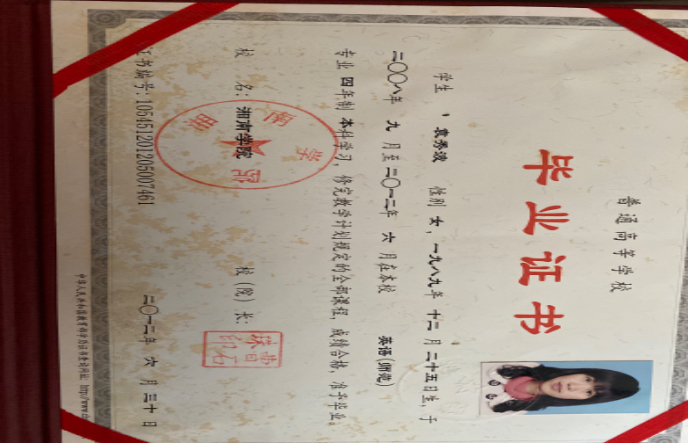 普通高等学校
毕业证书
学生 袁秀波 性别 女，一九八九年 十二月 二十五日生，于
二〇〇八年 九 月至二〇一二年 六 月在本校 英语(师范)
专业 四年制 本科学习，修完教学计划规定的全部课程，成绩合格，准予毕业。
校 名：湘南学院 校（院）长：
证书编号：105451201205007461 二〇一二年 六 月 三十 日